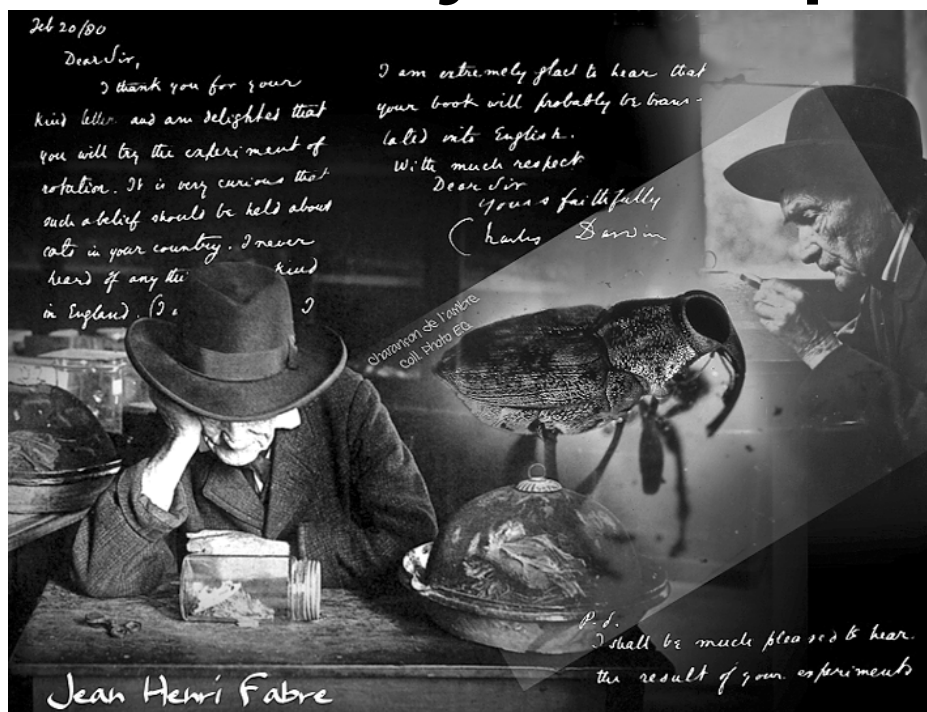 Feb 20/80
Dear Sir,
I thank you for your
kind letter and am delighted that
you will try the experiment of
rotation. It is very curious that
such a belief should be held about
cats in your country. I never
heard of any kind
in England. (I I
I am extremely glad to hear that
your book will probably be trans-
lated into English.
With much respect
Dear Sir
yours faithfully
Charles Darwin
Charançon de l'ambre
Coll. Photo EQ
P.S.
I shall be much pleased to hear
the result of your experiments
Jean Henri Fabre